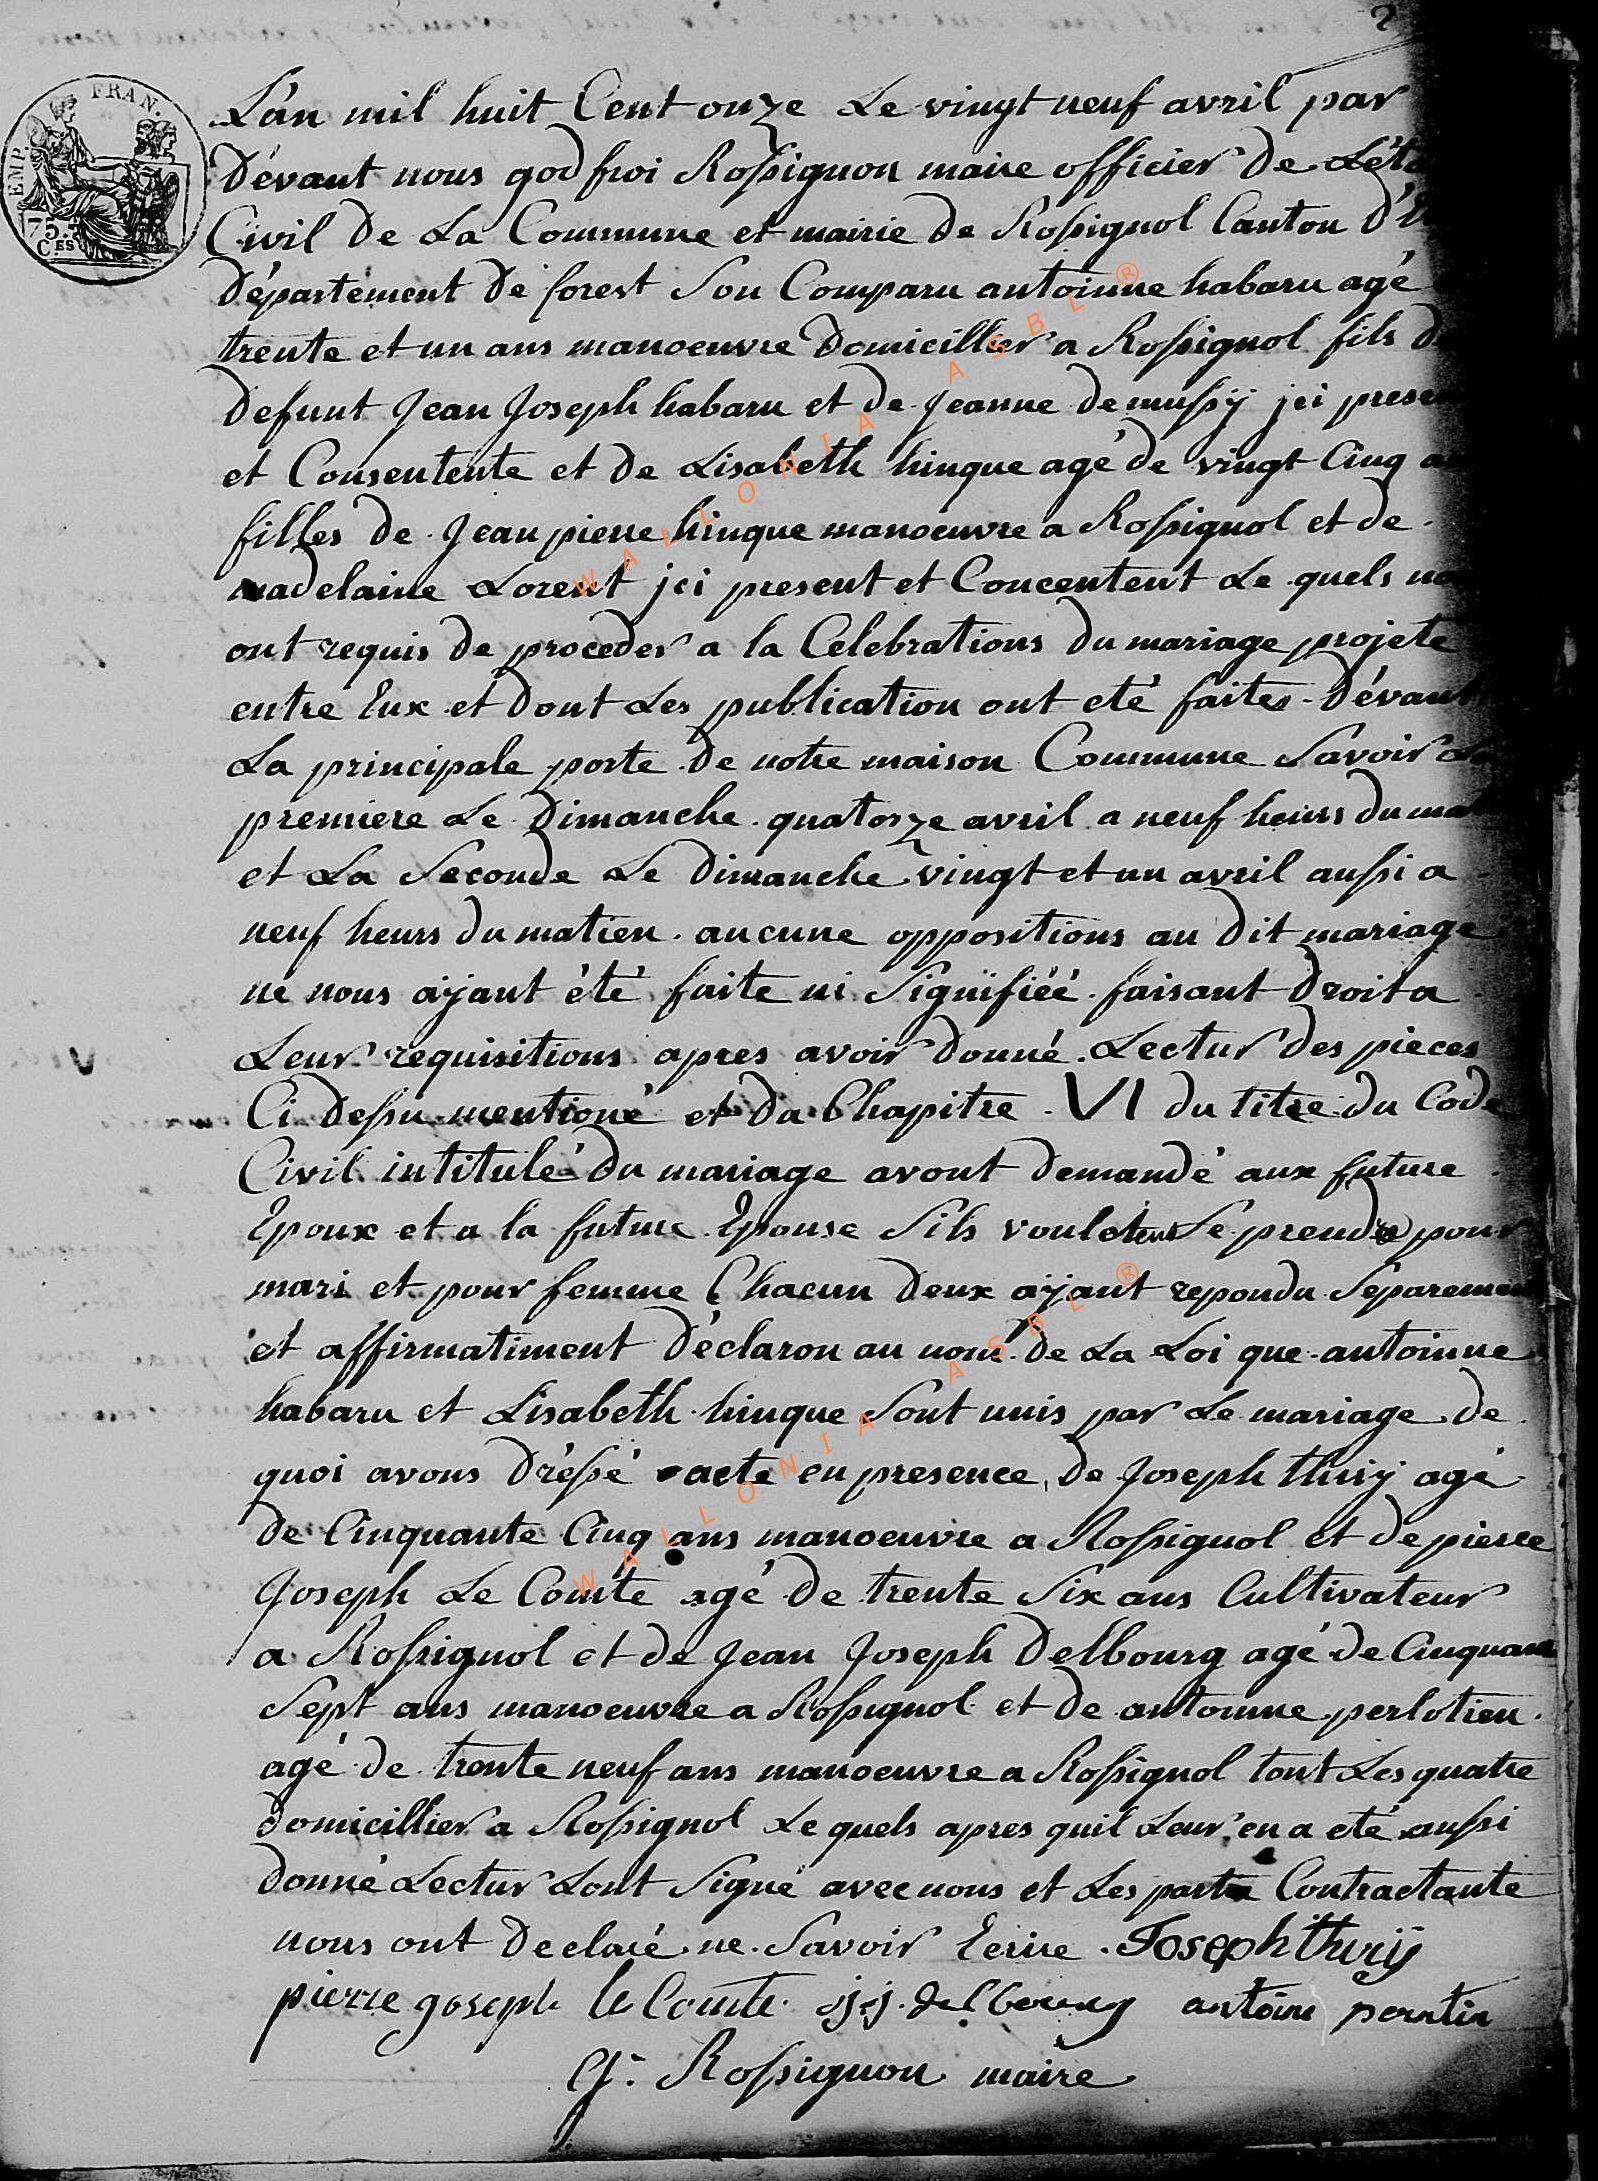 2
EMP. FRAN.
75. C.ES
L'an mil huit Cent onze Le vingt neuf avril par
Dévant nous godfroi Rossignon maire officier De L'ét
Civil De La Commune et mairie de Rossignol Canton d'
Département De forest Son Comparu antoinne habaru agé
trente et un ans manoeuvre Domicillier a Rossignol fils d
Defunt Jean Joseph habaru et de Jeanne demussÿ jci prese
et Consentente et de Lisabeth hinque agé de vingt Cinq
filles de Jean pierre hinque manoeuvre a Rossignol et de
madelaine Lorent jci present et Concentent Le quels no
ont requis de proceder a la Celebrations Du mariage projeté
entre Eux et Dont Les publication ont eté faites Dévant
La principale porte de notre maison Commune Savoir
premiere Le Dimanche quatorze avril a neuf heurs du mat
et La Seconde Le Dimanche vingt et un avril aussi a
neuf heurs du matien aucune oppositions au Dit mariage
ne nous aÿant été faite ni Signifiéé faisant Droit a
Leur requisitions apres avoir Donné Lectur Des pieces
Ci Dessu mentioné et du Chapitre VI du titre du Code
Civil intitulé Du mariage avont Demandé aux future
Epoux et a la future Epouse Sils Se prendre pour
mari et pour femme Chacun Deux aÿant repondu Séparement
et affirmatiment Déclaron au nom de La Loi que antoinne
habaru et Lisabeth hinque Sont unis par Le mariage de
quoi avons Dréssé acte en presence de Joseph thirÿ agé
de Cinquante Cinq ans manoeuvre a Rossignol et de pierre
Joseph Le Comte agé de trente Six ans Cultivateur
a Rossignol et de Jean Joseph Delbourg agé de Cinquante
Sept ans manoeuvre a Rossignol et de antoinne perlotien
agé de trente neuf ans manoeuvre a Rossignol tout Les quatre
domicillier a Rossignol Le quels apres quil Leur en a eté aussi
Donné Lectur Lont Signé avec nous et Les Contractante
nous ont Declaré ne Savoir Ecrire Joseph thirÿ
pierre joseph le Comte jj delbourg antoine
G: Rossignon maire
WALLONIA ASBL®
WALLONIA ASBL®